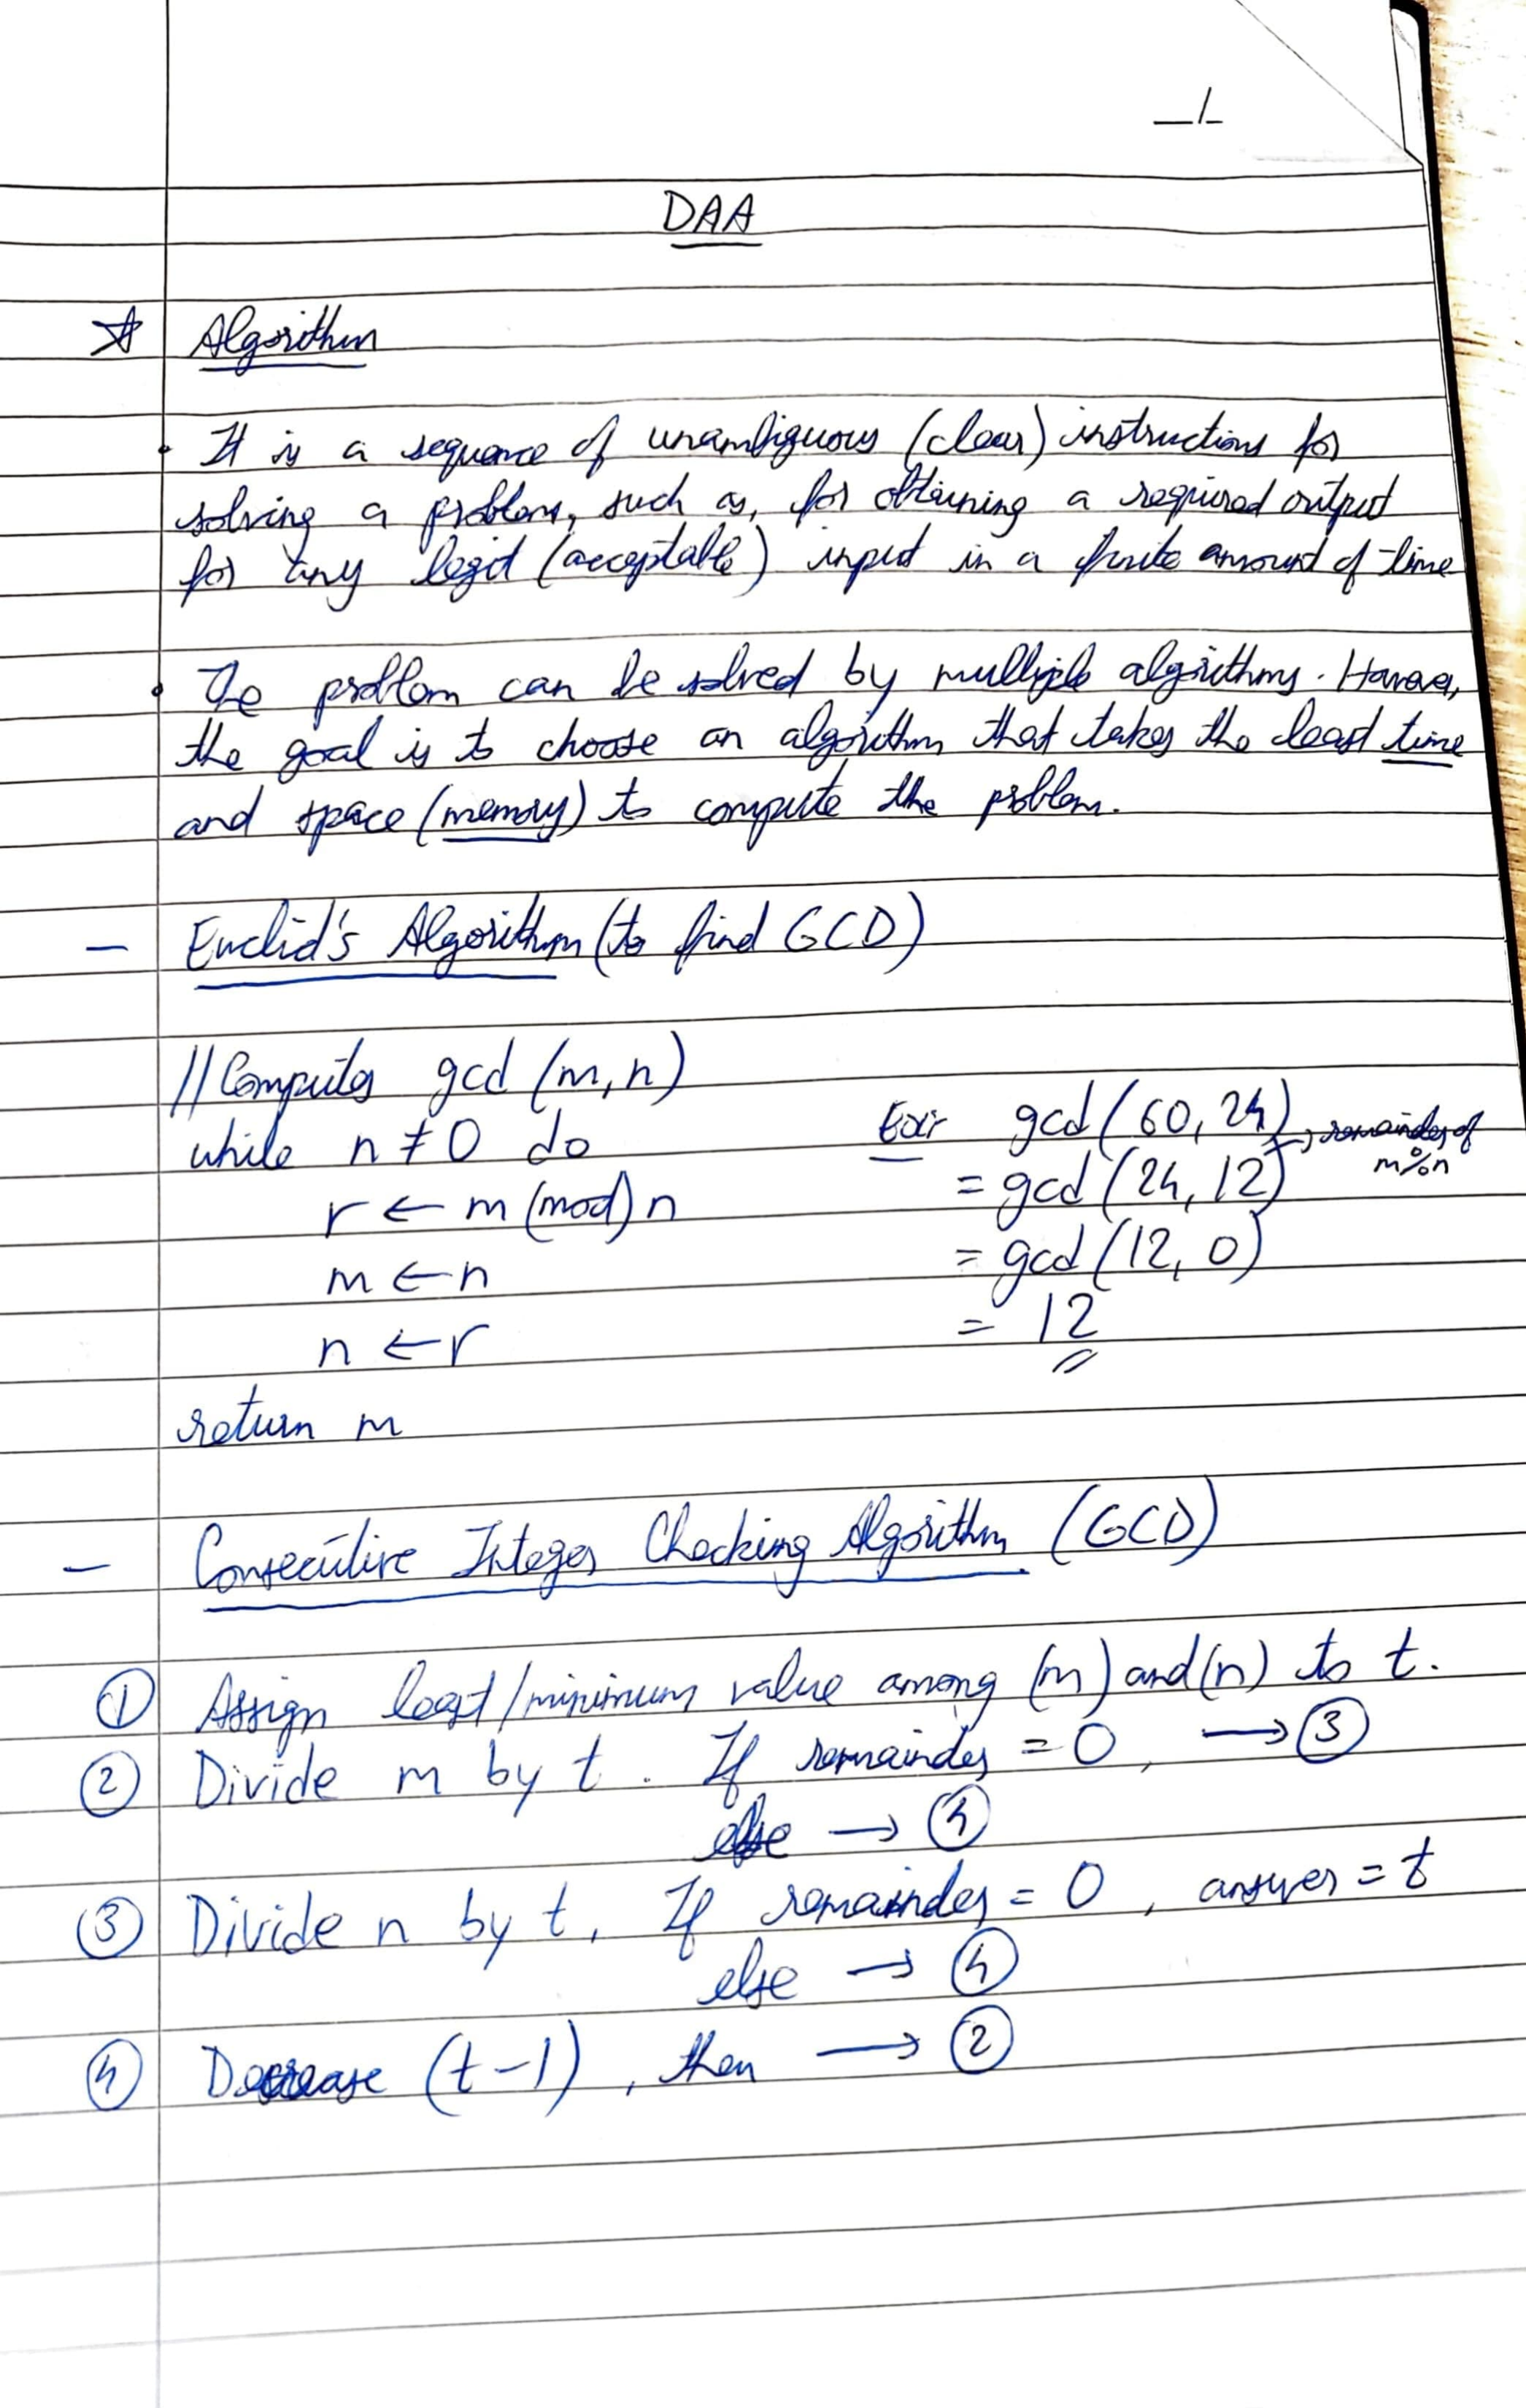 DAA
Algorithm
• It is a sequence of unambiguous (clear) instructions for
solving a problem, such as, for obtaining a required output
for any legit (acceptable) input in a finite amount of time
• The problem can be solved by multiple algorithms. However,
the goal is to choose an algorithm that takes the least time
and space (memory) to compute the problem.
- Euclid's Algorithm (to find GCD)
// Computes gcd (m, n)
while n ≠ 0 do
r ← m (mod) n
m ← n
n ← r
return m
Ex:- gcd (60, 24)
→ remainder of
m%n
= gcd (24, 12)
= gcd (12, 0)
= 12
- Consecutive Integer Checking Algorithm (GCD)
① Assign least/minimum value among (m) and (n) to t.
② Divide m by t. If remainder = 0, → ③
else → ④
③ Divide n by t. If remainder = 0, answer = t
else → ④
④ Decrease (t-1), then → ②